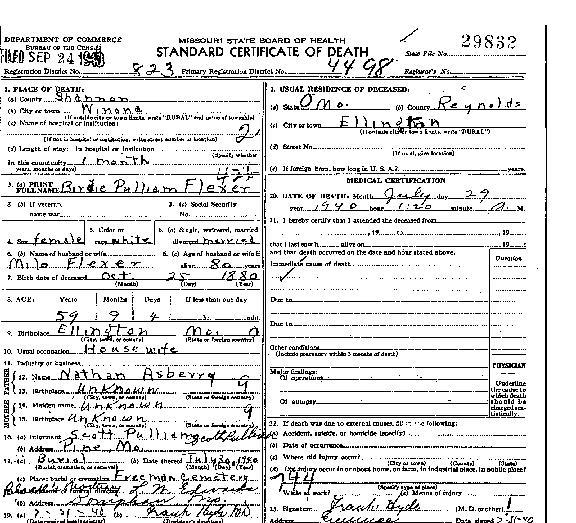 DEPARTMENT OF COMMERCE
BUREAU OF THE CENSUS
FILED SEP 24
MISSOURI STATE BOARD OF HEALTH
STANDARD CERTIFICATE OF DEATH
State File No. 29832
Registration District No. 823 Primary Registration District No. 4498 Registrar's No.
1. PLACE OF DEATH:
(a) County Shannon
(b) City or town Winona
(c) Name of hospital or institution:
(d) Length of stay: In hospital or institution
In this community 1 month
3. (a) PRINT FULL NAME Birdie Pulliam Flexer
3. (b) If veteran, name war
3. (c) Social Security No.
4. Sex female
5. Color or race white
6. (a) Single, widowed, married, divorced married
6. (b) Name of husband or wife Milo Flexer
6. (c) Age of husband or wife if alive 80 years
7. Birth date of deceased Oct 25 1880
(Month) (Day) (Year)
8. AGE: Years Months Days If less than one day
59 9 4
9. Birthplace Ellington Mo.
10. Usual occupation House wife
11. Industry or business
12. Name Nathan Asberry
13. Birthplace Unknown
14. Maiden name Unknown
15. Birthplace Unknown
16. (a) Informant Scott Pulliam
(b) Address Pine Mo
17. (a) Burial (b) Date thereof July 30, 1940
(c) Place: burial or cremation Freeman Cemetery
2. USUAL RESIDENCE OF DECEASED:
(a) State Mo. (b) County Reynolds
(c) City or town Ellington
(d) Street No.
(e) If foreign born, how long in U. S. A.? years.
MEDICAL CERTIFICATION
20. DATE OF DEATH: Month July day 29
year 1940 hour 1:20 minute
21. I hereby certify that I attended the deceased from
, 19 , to , 19
that I last saw h alive on , 19
and that death occurred on the date and hour stated above.
Immediate cause of death
Duration
Due to
Due to
Other conditions
(Include pregnancy within 3 months of death)
Major findings:
Of operations
Of autopsy
PHYSICIAN
Underline the cause to which death should be charged statistically.
22. If death was due to external causes, fill in the following:
(a) Accident, suicide, or homicide (specify)
(b) Date of occurrence
(c) Where did injury occur?
(City or town) (County) (State)
(d) Did injury occur in or about home, on farm, in industrial place, in public place?
(Specify type of place)
While at work? (e) Means of injury
23. Signature Frank Hyde